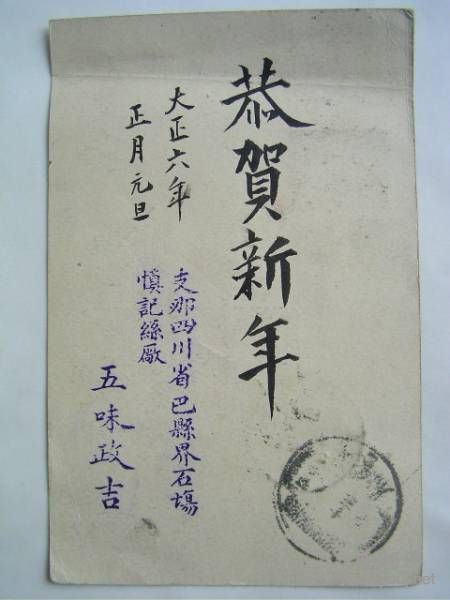 恭賀新年
大正六年
正月元旦
支那四川省巴縣界石場
慎記絲厰
五味政吉